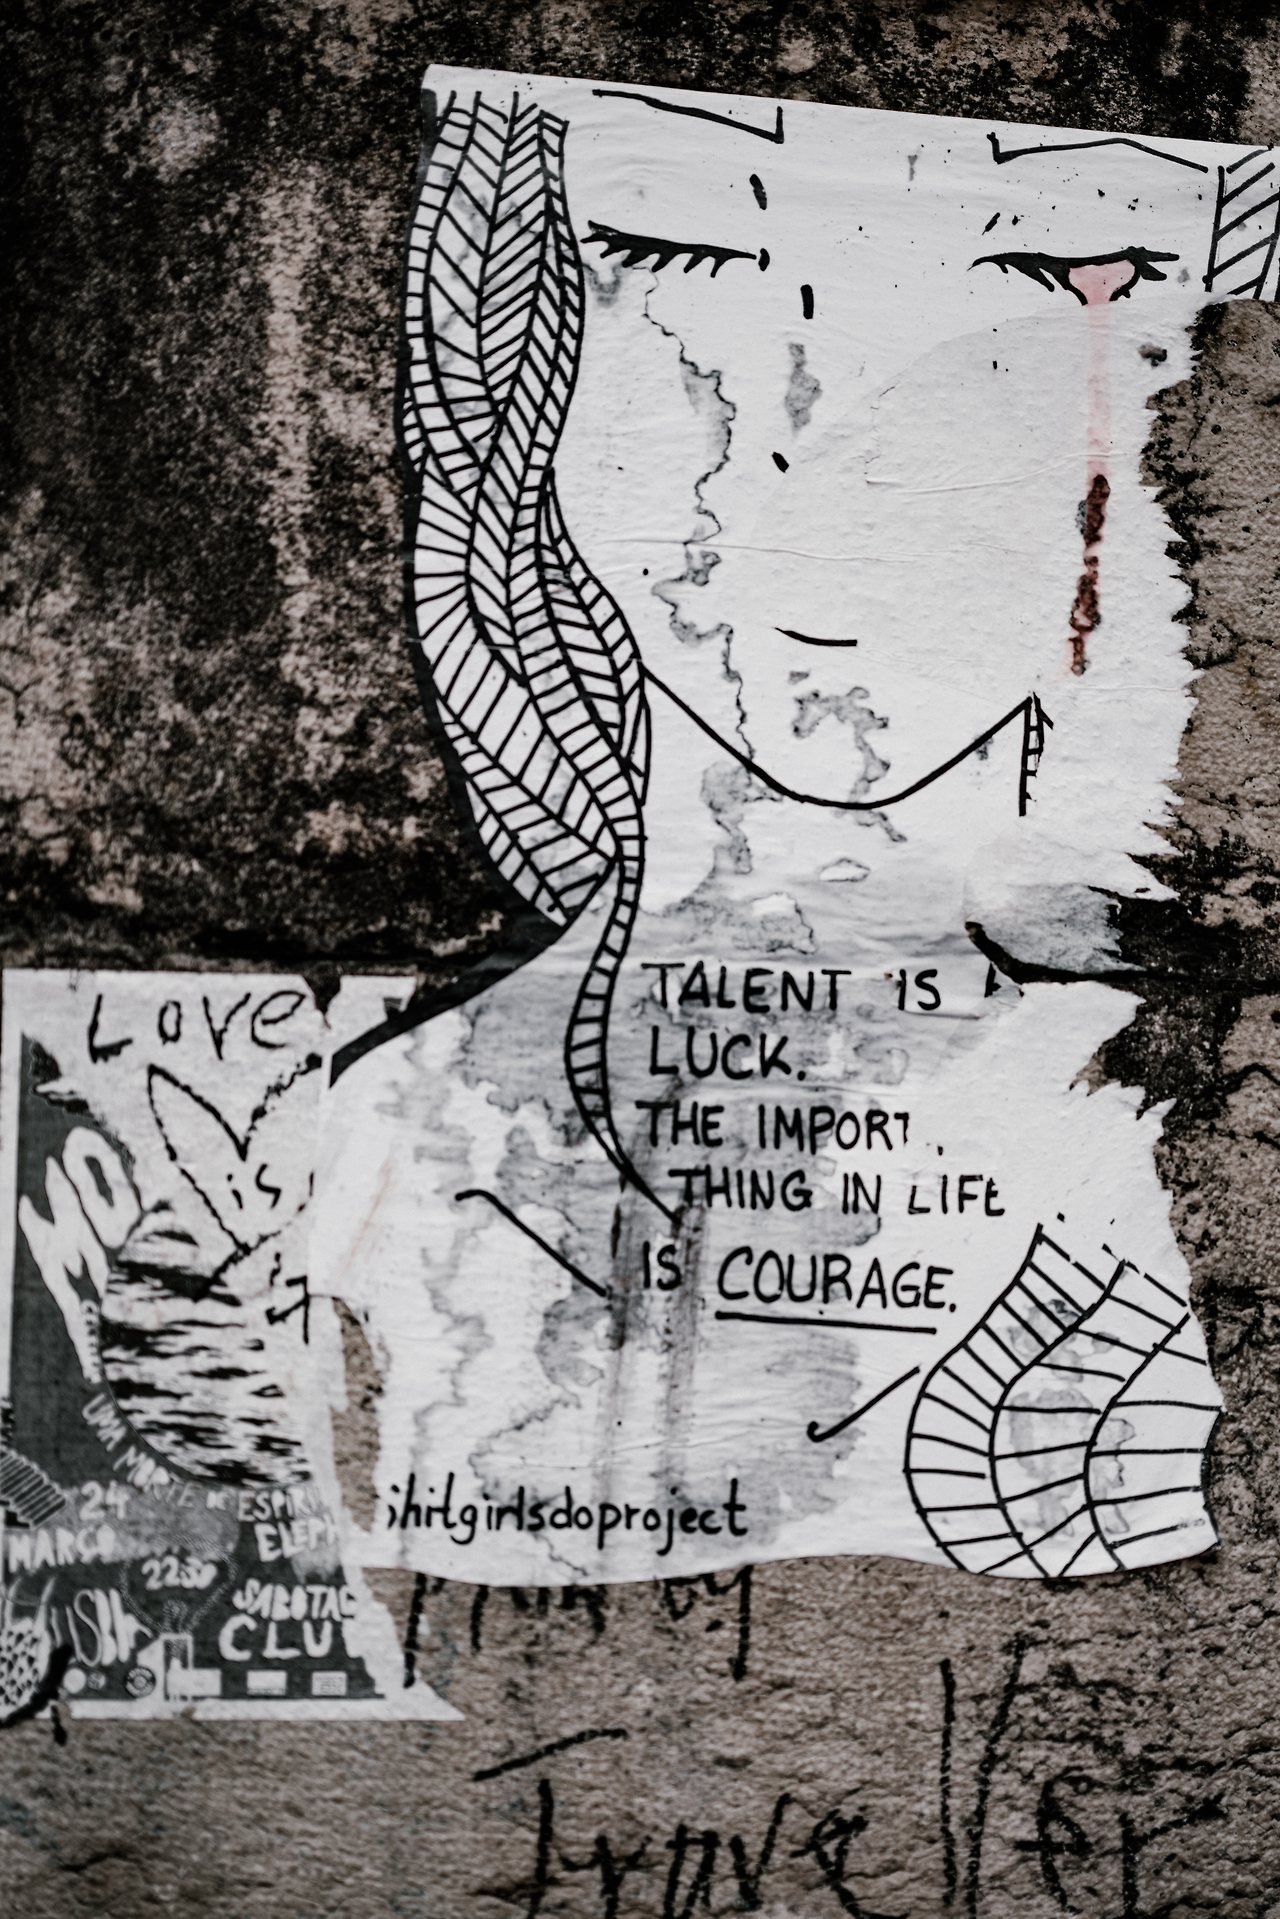 TALENT IS
LUCK.
THE IMPORT
THING IN LIFE
IS COURAGE.
ihitgirlsdoproject
Love
is
UMA MORTE DE ESPIR
24
MARÇO
ELEPH
2230
SABOTAG
CLU
by
Traveller